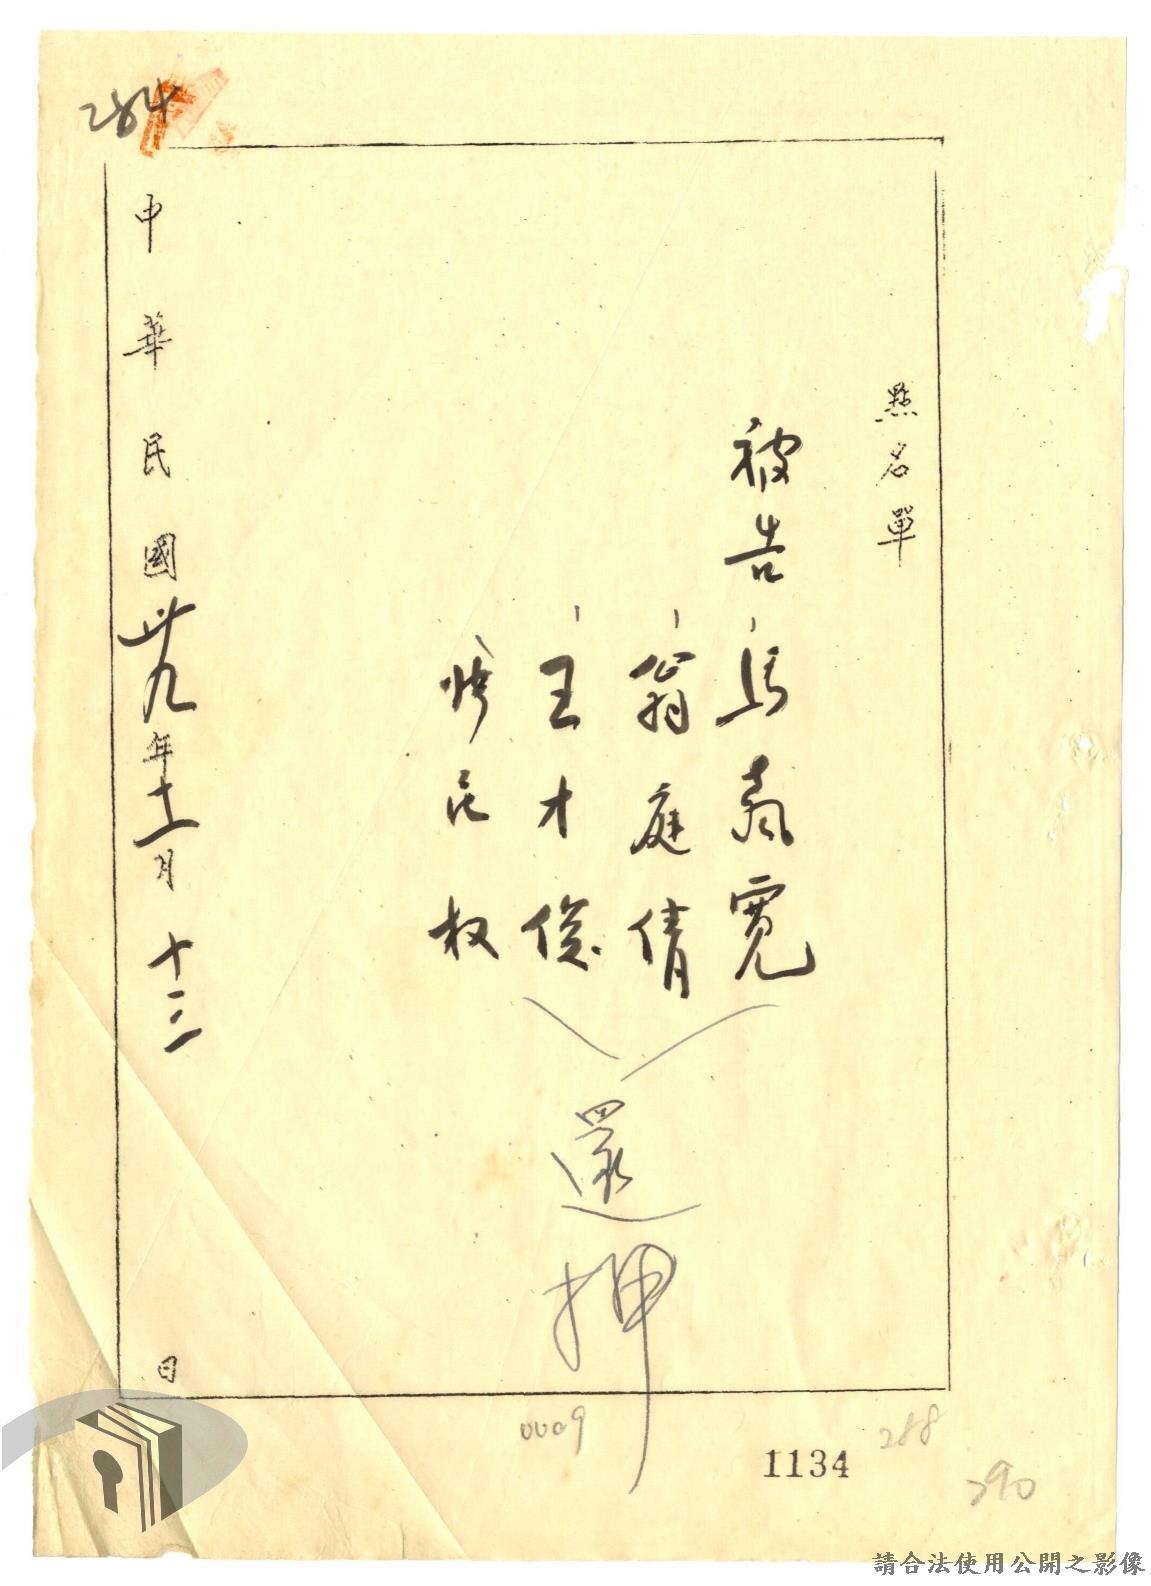 284
點名單
被告 馬奔寬
翁庭倩
王才俊
民权
還押
中華民國卅九年十二月十三日
0009
288
1134
290
請合法使用公開之影像